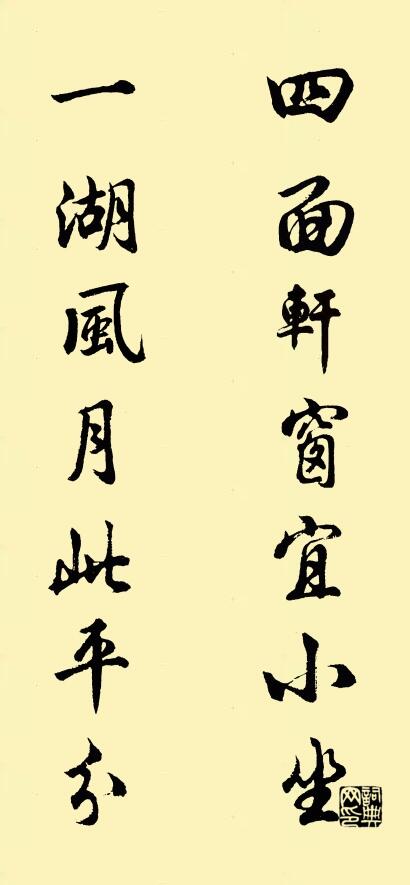 四面軒窗宜小坐
一湖風月此平分
詞典網印